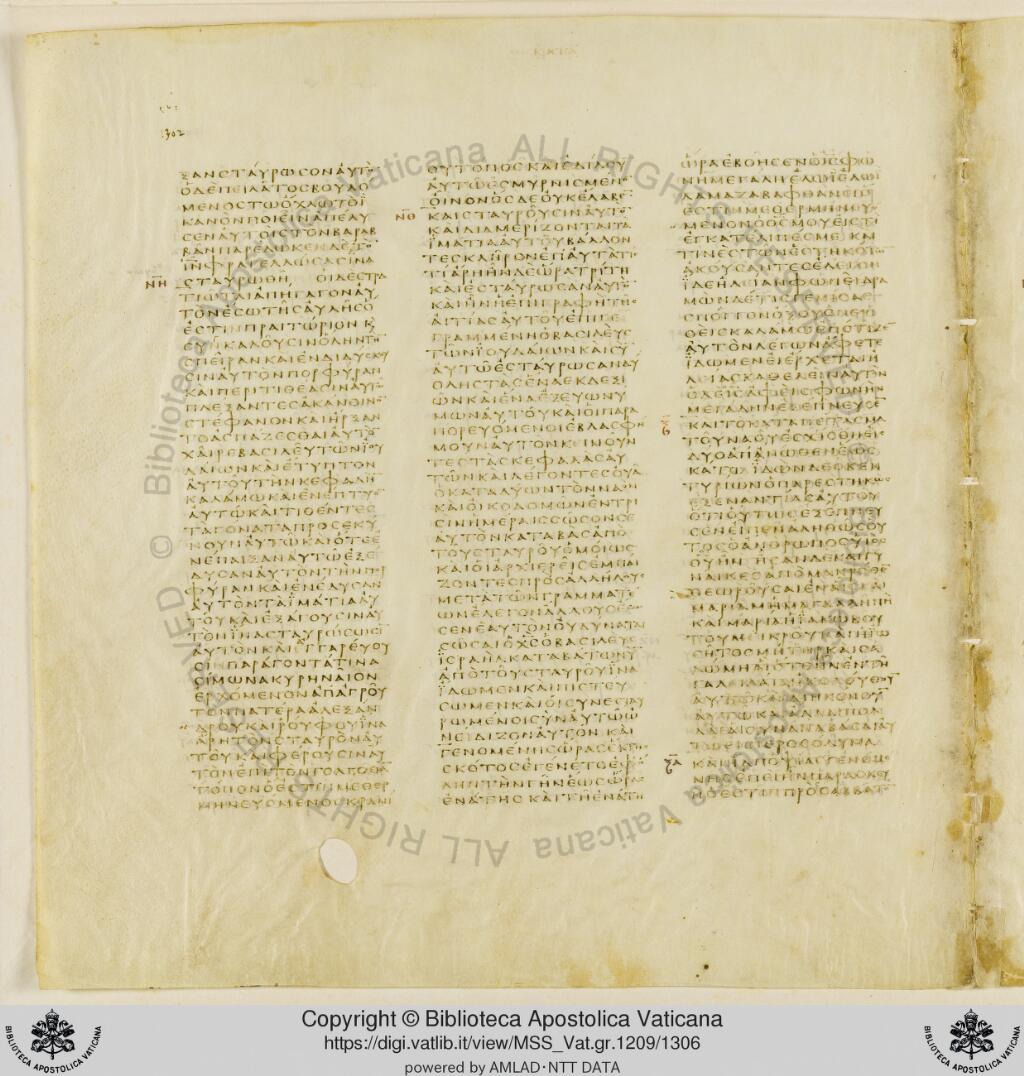 ΜΑΡΚΟΝ
1302
ΞΑΝϹΤΑΥΡΩϹΟΝΑΥΤΟ̅
ΟΔΕΠΕΙΛΑΤΟϹΒΟΥΛΟ
ΜΕΝΟϹΤΩΟΧΛΩΤΟΙ
ΚΑΝΟΝΠΟΙΗϹΑΙΑΠΕΛΥ
ϹΕΝΑΥΤΟΙϹΤΟΝΒΑΡΑΒ
ΒΑΝΠΑΡΕΔΩΚΕΝΔΕΤΟ̅
ΙΝ̅ΦΡΑΓΕΛΛΩϹΑϹΙΝΑ
ΝΗ̅
ϹΤΑΥΡΩΘΗ ΟΙΔΕϹΤΡΑ
ΤΙΩΤΑΙΑΠΗΓΑΓΟΝΑΥ
ΤΟΝΕϹΩΤΗϹΑΥΛΗϹΟ
ΕϹΤΙΝΠΡΑΙΤΩΡΙΟΝΚ
ϹΥΝΚΑΛΟΥϹΙΝΟΛΗΝΤΗ̅
ϹΠΕΙΡΑΝΚΑΙΕΝΔΙΔΥϹΚΟΥ
ϹΙΝΑΥΤΟΝΠΟΡΦΥΡΑΝ
ΚΑΙΠΕΡΙΤΙΘΕΑϹΙΝΑΥΤΩ
ΠΛΕΞΑΝΤΕϹΑΚΑΝΘΙΝΟ̅
ϹΤΕΦΑΝΟΝΚΑΙΗΡΞΑΝ
ΤΟΑϹΠΑΖΕϹΘΑΙΑΥΤΟ̅
ΧΑΙΡΕΒΑϹΙΛΕΥΤΩΝΙΟΥ
ΔΑΙΩΝΚΑΙΕΤΥΠΤΟΝ
ΑΥΤΟΥΤΗΝΚΕΦΑΛΗ̅
ΚΑΛΑΜΩΚΑΙΕΝΕΠΤΥΟ̅
ΑΥΤΩΚΑΙΤΙΘΕΝΤΕϹ
ΤΑΓΟΝΑΤΑΠΡΟϹΕΚΥ
ΝΟΥΝΑΥΤΩΚΑΙΟΤΕΕ
ΝΕΠΑΙΞΑΝΑΥΤΩΕΞΕ
ΔΥϹΑΝΑΥΤΟΝΤΗΝΠΟΡ
ΦΥΡΑΝΚΑΙΕΝΕΔΥϹΑΝ
ΑΥΤΟΝΤΑΙΜΑΤΙΑΑΥ
ΤΟΥΚΑΙΕΞΑΓΟΥϹΙΝΑΥ
ΤΟΝΙΝΑϹΤΑΥΡΩϹΩϹΙ̅
ΑΥΤΟΝΚΑΙΕΓΓΑΡΕΥΟΥ
ϹΙΝΠΑΡΑΓΟΝΤΑΤΙΝΑ
ϹΙΜΩΝΑΚΥΡΗΝΑΙΟΝ
ΕΡΧΟΜΕΝΟΝΑΠΑΓΡΟΥ
ΤΟΝΠΑΤΕΡΑΑΛΕΞΑΝ
ΔΡΟΥΚΑΙΡΟΥΦΟΥΙΝΑ
ΑΡΗΤΟΝϹΤΑΥΡΟΝΑΥ
ΤΟΥΚΑΙΦΕΡΟΥϹΙΝΑΥ
ΤΟΝΕΠΙΤΟΝΓΟΛΓΟΘΑ
ΤΟΠΟΝΟΕϹΤΙΝΜΕΘΕΡ
ΜΗΝΕΥΟΜΕΝΟϹΚΡΑΝΙ
ΟΥΤΟΠΟϹΚΑΙΕΔΙΔΟΥ̅
ΑΥΤΩΕϹΜΥΡΝΙϹΜΕΝΟ̅
ΟΙΝΟΝΟϹΔΕΟΥΚΕΛΑΒΕ̅
ΝΘ̅
ΚΑΙϹΤΑΥΡΟΥϹΙΝΑΥΤΟ̅
ΚΑΙΔΙΑΜΕΡΙΖΟΝΤΑΙΤΑ
ΙΜΑΤΙΑΑΥΤΟΥΒΑΛΛΟΝ
ΤΕϹΚΛΗΡΟΝΕΠΑΥΤΑΤΙϹ
ΤΙΑΡΗΗΝΔΕΩΡΑΤΡΙΤΗ
ΚΑΙΕϹΤΑΥΡΩϹΑΝΑΥΤΟ̅
ΚΑΙΗΝΗΕΠΙΓΡΑΦΗΤΗϹ
ΑΙΤΙΑϹΑΥΤΟΥΕΠΙΓΕ
ΓΡΑΜΜΕΝΗΟΒΑϹΙΛΕΥϹ
ΤΩΝΙΟΥΔΑΙΩΝΚΑΙϹΥ̅
ΑΥΤΩΕϹΤΑΥΡΩϹΑΝΔΥΟ
ΛΗϹΤΑϹΕΝΑΕΚΔΕΞΙ
ΩΝΚΑΙΕΝΑΕΞΕΥΩΝΥ
ΜΩΝΑΥΤΟΥΚΑΙΟΙΠΑΡΑ
ΠΟΡΕΥΟΜΕΝΟΙΕΒΛΑϹΦΗ
ΜΟΥΝΑΥΤΟΝΚΕΙΝΟΥΝ
ΤΕϹΤΑϹΚΕΦΑΛΑϹΑΥ
ΤΩΝΚΑΙΛΕΓΟΝΤΕϹΟΥΑ
ΟΚΑΤΑΛΥΩΝΤΟΝΝΑΟ̅
ΚΑΙΟΙΚΟΔΟΜΩΝΕΝΤΡΙ
ϹΙΝΗΜΕΡΑΙϹϹΩϹΟΝϹΕ
ΑΥΤΟΝΚΑΤΑΒΑϹΑΠΟ
ΤΟΥϹΤΑΥΡΟΥΟΜΟΙΩϹ
ΚΑΙΟΙΑΡΧΙΕΡΕΙϹΕΜΠΑΙ
ΖΟΝΤΕϹΠΡΟϹΑΛΛΗΛΟΥϹ
ΜΕΤΑΤΩΝΓΡΑΜΜΑΤΕ
ΩΝΕΛΕΓΟΝΑΛΛΟΥϹΕϹΩ
ϹΕΝΕΑΥΤΟΝΟΥΔΥΝΑΤΑΙ
ϹΩϹΑΙΟΧϹ̅ΟΒΑϹΙΛΕΥϹ
ΙϹΡΑΗΛΚΑΤΑΒΑΤΩΝΥ̅
ΑΠΟΤΟΥϹΤΑΥΡΟΥΙΝΑ
ΙΔΩΜΕΝΚΑΙΠΙϹΤΕΥ
ϹΩΜΕΝΚΑΙΟΙϹΥΝΕϹΤΑΥ
ΡΩΜΕΝΟΙϹΥΝΑΥΤΩΩ
ΝΕΙΔΙΖΟΝΑΥΤΟΝΚΑΙ
ΓΕΝΟΜΕΝΗϹΩΡΑϹΕΚΤΗϹ
ϹΚΟΤΟϹΕΓΕΝΕΤΟΕΦΟ
ΛΗΝΤΗΝΓΗΝΕΩϹΩΡΑϹ
ΕΝΑΤΗϹΚΑΙΤΗΕΝΑΤΗ
ΩΡΑΕΒΟΗϹΕΝΟΙϹ̅ΦΩ
ΝΗΜΕΓΑΛΗΕΛΩΙΕΛΩΙ
ΛΑΜΑΖΑΒΑΦΘΑΝΕΙΟ
ΕϹΤΙΝΜΕΘΕΡΜΗΝΕΥΟ
ΜΕΝΟΝΟΘϹ̅ΜΟΥΕΙϹΤΙ
ΕΓΚΑΤΕΛΙΠΕϹΜΕΚΑΙ
ΤΙΝΕϹΤΩΝΕϹΤΗΚΟΤΩ̅
ΑΚΟΥϹΑΝΤΕϹΕΛΕΓΟΝ
ΙΔΕΗΛΕΙΑΝΦΩΝΕΙΔΡΑ
ΜΩΝΔΕΤΙϹΓΕΜΙϹΑϹ
ϹΠΟΓΓΟΝΟΞΟΥϹΠΕΡΙ
ΘΕΙϹΚΑΛΑΜΩΕΠΟΤΙΖΕ̅
ΑΥΤΟΝΛΕΓΩΝΑΦΕΤΕ
ΙΔΩΜΕΝΕΙΕΡΧΕΤΑΙΗ
ΛΕΙΑϹΚΑΘΕΛΕΙΝΑΥΤΟΝ
ΟΔΕΙϹ̅ΑΦΕΙϹΦΩΝΗΝ
ΜΕΓΑΛΗΝΕΞΕΠΝΕΥϹΕ̅
Ξ̅
ΚΑΙΤΟΚΑΤΑΠΕΤΑϹΜΑ
ΤΟΥΝΑΟΥΕϹΧΙϹΘΗΕΙϹ
ΔΥΟΑΠΑΝΩΘΕΝΕΩϹ
ΚΑΤΩΙΔΩΝΔΕΟΚΕΝ
ΤΥΡΙΩΝΟΠΑΡΕϹΤΗΚΩϹ
ΕΞΕΝΑΝΤΙΑϹΑΥΤΟΥ
ΟΤΙΟΥΤΩϹΕΞΕΠΝΕΥ
ϹΕΝΕΙΠΕΝΑΛΗΘΩϹΟΥ
ΤΟϹΟΑΝΘΡΩΠΟϹΥΙΟϹ
ΘΥ̅ΗΝΗϹΑΝΔΕΚΑΙΓΥ
ΝΑΙΚΕϹΑΠΟΜΑΚΡΟΘΕ̅
ΘΕΩΡΟΥϹΑΙΕΝΑΙϹΚΑΙ
ΜΑΡΙΑΜΗΜΑΓΔΑΛΗΝΗ
ΚΑΙΜΑΡΙΑΗΙΑΚΩΒΟΥ
ΤΟΥΜΕΙΚΡΟΥΚΑΙΗΙΩ
ϹΗΤΟϹΜΗΤΗΡΚΑΙϹΑ
ΛΩΜΗΑΙΟΤΕΗΝΕΝΤΗ
ΓΑΛΕΙΛΑΙΑΗΚΟΛΟΥΘΟΥ̅
ΑΥΤΩΚΑΙΔΙΗΚΟΝΟΥ̅
ΑΥΤΩΚΑΙΑΛΛΑΙΠΟΛ
ΛΑΙΑΙϹΥΝΑΝΑΒΑϹΑΙΑΥ
ΤΩΕΙϹΙΕΡΟϹΟΛΥΜΑ
ΞΑ̅
ΚΑΙΗΔΗΟΨΙΑϹΓΕΝΟΜΕ
ΝΗϹΕΠΕΙΗΝΠΑΡΑϹΚΕΥ
ΗΟΕϹΤΙΝΠΡΟϹΑΒΒΑΤΟ̅
© Biblioteca Apostolica Vaticana ALL RIGHTS RESERVED
BIBLIOTECA APOSTOLICA VATICANA
Copyright © Biblioteca Apostolica Vaticana
https://digi.vatlib.it/view/MSS_Vat.gr.1209/1306
powered by AMLAD·NTT DATA
BIBLIOTECA APOSTOLICA VATICANA